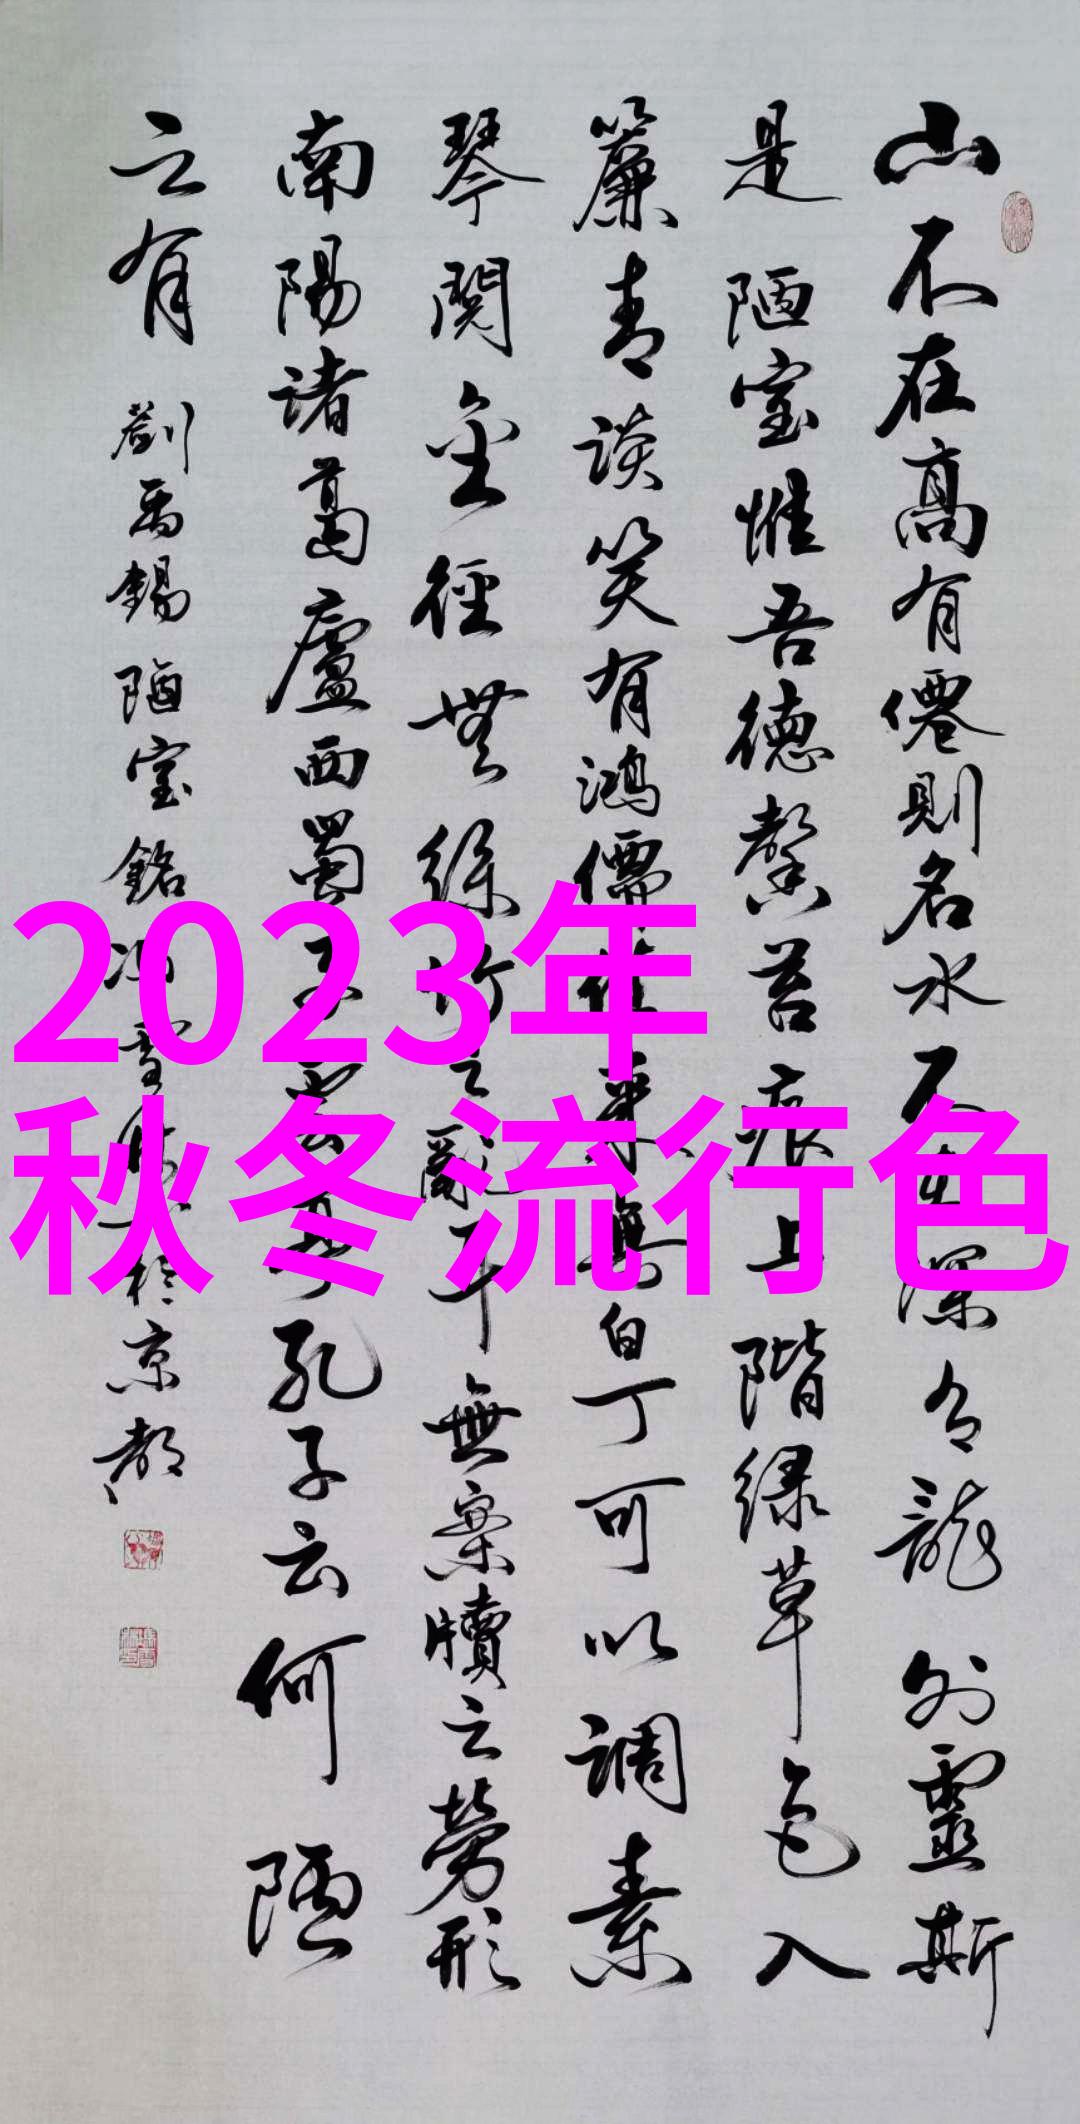 山不在高有僊則名水不在深有龍則靈斯
是陋室惟吾德馨苔痕上階緑草色入
簾青談笑有鴻儒往来無白丁可以调素
琴閱金徑無絲竹之亂耳無案牘之勞形
南陽诸葛廬西蜀子雲亭孔子云何陋
之有 劉禹錫 陋室銘 於京都
2023年
秋冬流行色